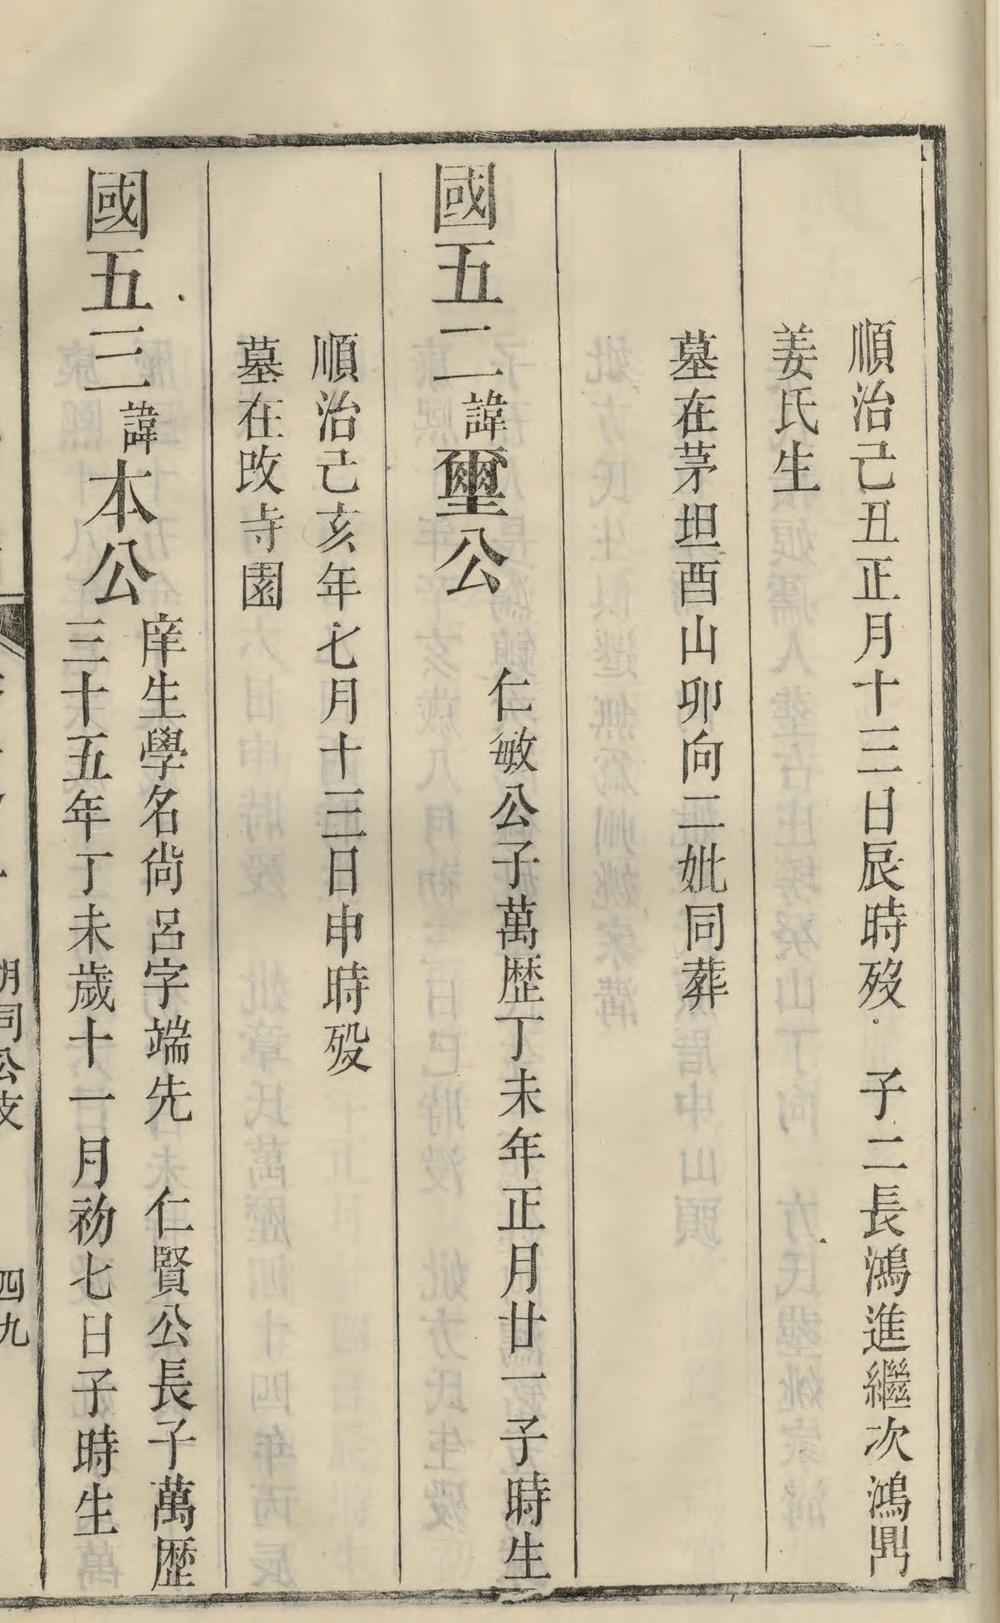 順治己丑正月十三日辰時歿 子二長鴻進繼次鴻鼎
姜氏生
墓在茅坦酉山卯向二妣同葬
國五二諱璽公 仁敏公子萬歷丁未年正月廿一子時生
順治己亥年七月十三日申時歿
墓在改寺園
國五三諱本公 庠生學名尚呂字端先 仁賢公長子萬歷
三十五年丁未歲十一月初七日子時生
同公支 四九